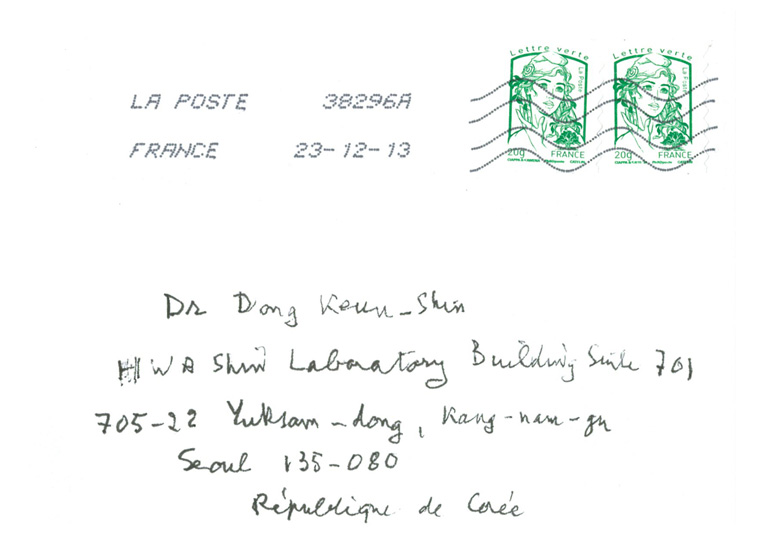 Lettre verte Lettre verte
La Poste La Poste
LA POSTE 38296A
FRANCE 23-12-13
20g FRANCE 20g FRANCE
Dr Dong Keun-Shin
HWA Shin Laboratory Building Suite 701
705-22 Yuksam-dong, Kang-nam-gu
Seoul 135-080
République de Corée